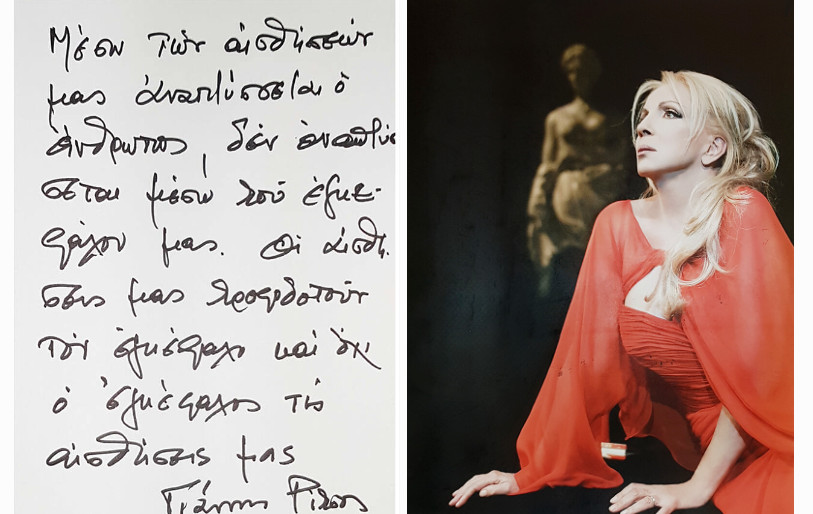 Μέσω τῶν αἰσθήσεών
μας ἀναπτύσσεται ὁ
ἄνθρωπος, δέν ἀναπτύσ
σεται μέσω τοῦ ἐγκε-
φάλου μας. Οἱ αἰσθή-
σεις μας τροφοδοτοῦν
τόν ἐγκέφαλο καί ὄχι
ὁ ἐγκέφαλος τίς
αἰσθήσεις μας
Γιάννης Ρίτσος